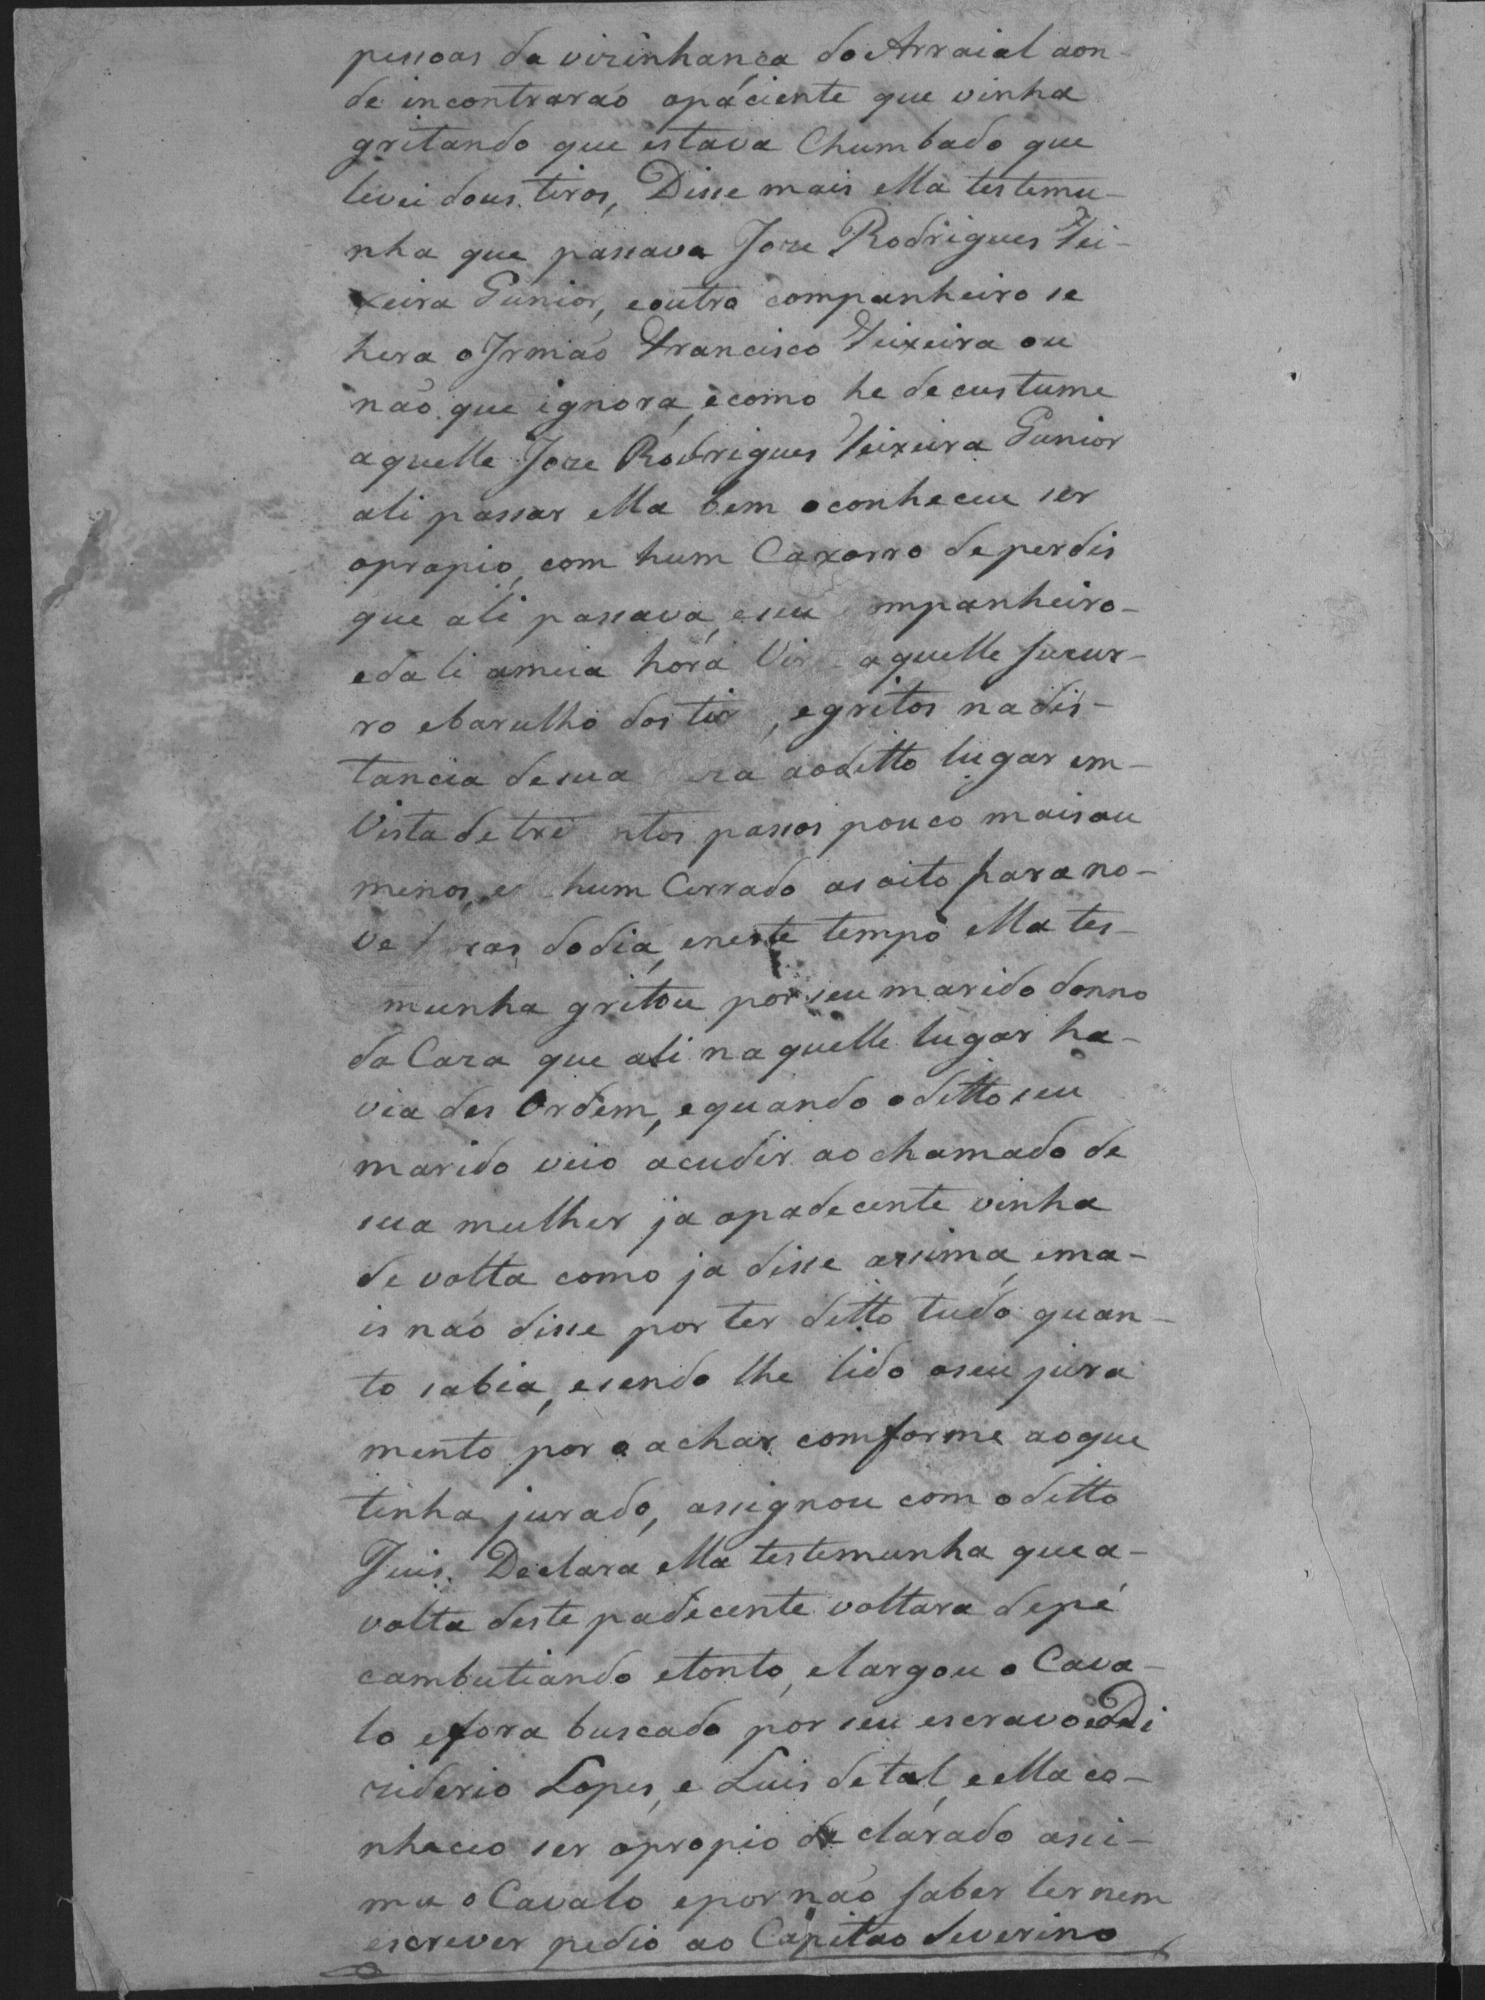 pessoas da vizinhança do Arraial aon-
de incontrarão opáciente que vinha
gritando que estava Chumbado que
levei dous tiros, Disse mais ella testemu-
nha que passava Joze Rodrigues Tei-
xeira Junior, eoutro companheiro se
hera o Irmão Francisco Teixeira ou
não que ignora, ecomo he de custume
aquelle Joze Rodrigues Teixeira Junior
ali passar ella bem oconheceu ser
opropio, com hum Caxorro deperdis
que ali passava, eseu mpanheiro-
edali ameia hora aquelle
ro ebarulho dos tir , egritos nadis-
tancia desua za aoditto lugar em-
Vista de tre ntos passos pouco maisou
menos, e hum Cerrado as oito para no-
ve ras dodia, eneste tempo ella tes-
munha gritou por seu marido donno
da Caza que ali naquelle lugar ha-
via des Ordem, equando oditto seu
marido veio acudir ao chamado de
sua mulher ja opadecente vinha
de volta como ja disse assima, ema-
is não disse por ter ditto tudo quan-
to sabia, esendo lhe lido oseu jura
mento por o achar comforme aoque
tinha jurado, assignou com oditto
Juis. Declara ella testemunha que a-
volta deste padecente voltara depé
cambutiando etonto, elargou o Cava-
lo efora buscado por seu escravo eDi
ziderio Lopes, e Luis detal, eella co-
nheceo ser opropio declarado assi-
ma o Cavalo epornão saber ler nem
escrever pedio ao Capitão Severino